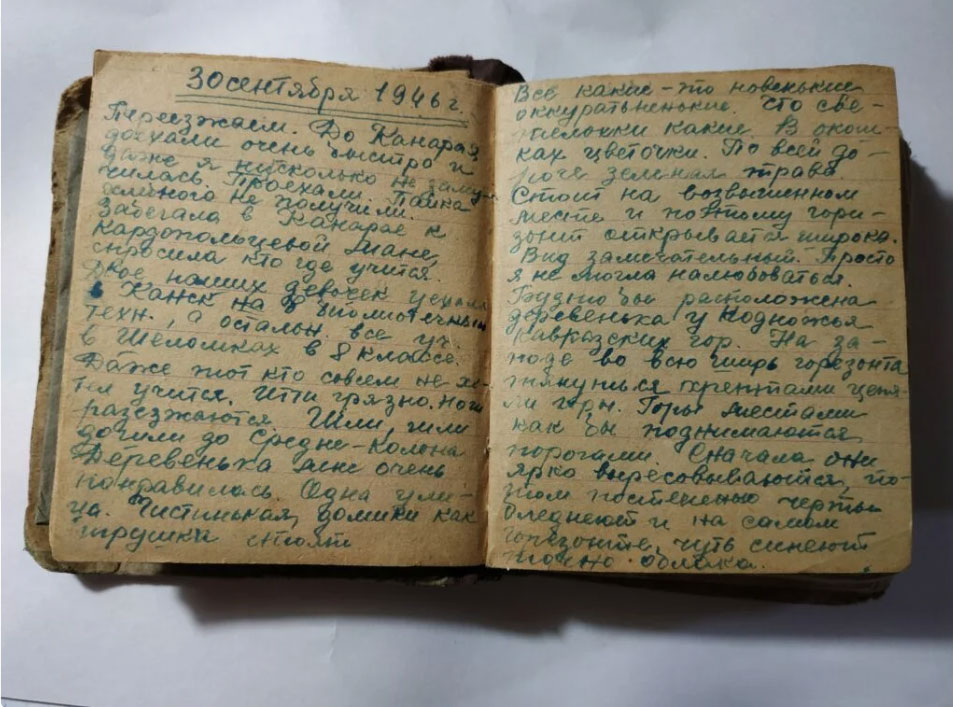 30 сентября 1946 г.
Переезжаем. До Канарая
доехали очень быстро и
даже я нисколько не заму-
чилась. Проехали. Пайка
хлебного не получили.
Забегала в Канарае к
Кардопольцевой Мане,
спросила кто где учится.
Двое наших девочек уехали
в Канск на библиотечный
техн., а остальн. все уч.
в Шеломках в 8 классе.
Даже тот кто совсем не хо-
тел учится. Итти грязно. Ноги
разсзжаются. Шли, шли
дошли до Средне-Колона
Деревенька мне очень
понравилась. Одна ули-
ца. Чистинькая, домики как
игрушки стоят
Все какие-то новенькие
оккуратьненькие. Что све-
какие. В окош-
ках цветочки. По всей до-
роге зеленая трава.
Стоит на возвышенном
месте и поэтому гори-
зонт открывается широко.
Вид замечательный. Просто
я не могла налюбоваться.
Будто бы расположена
деревенька у подножья
Кавказских гор. На за-
подe во всю ширь горезонта
тянуться хребтами цепя-
ми горы. Горы местами
как бы поднимаются
порогами. Сначала они
ярко выресовываются, по-
том постепенно черты
бледнеют и на самом
горезонте, чуть синеют
точно облака.